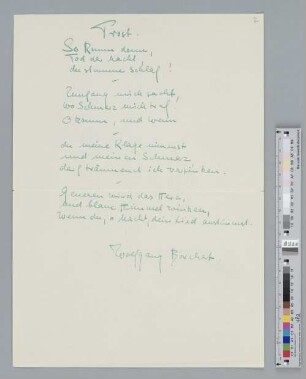 Trost.
So komm denn,
Tod der Nacht,
du stummer Schlaf!
Umfang mich sacht,
wo Schmerz mich traf
O komm, und wenn
du meine Klage nimmst
und meinen Schmerz
darf träumend ich versinken.
Genesen wird das Herz,
und blaue Himmel winken,
wenn du, o Nacht, dein Lied anstimmst.
Wolfgang Borchert